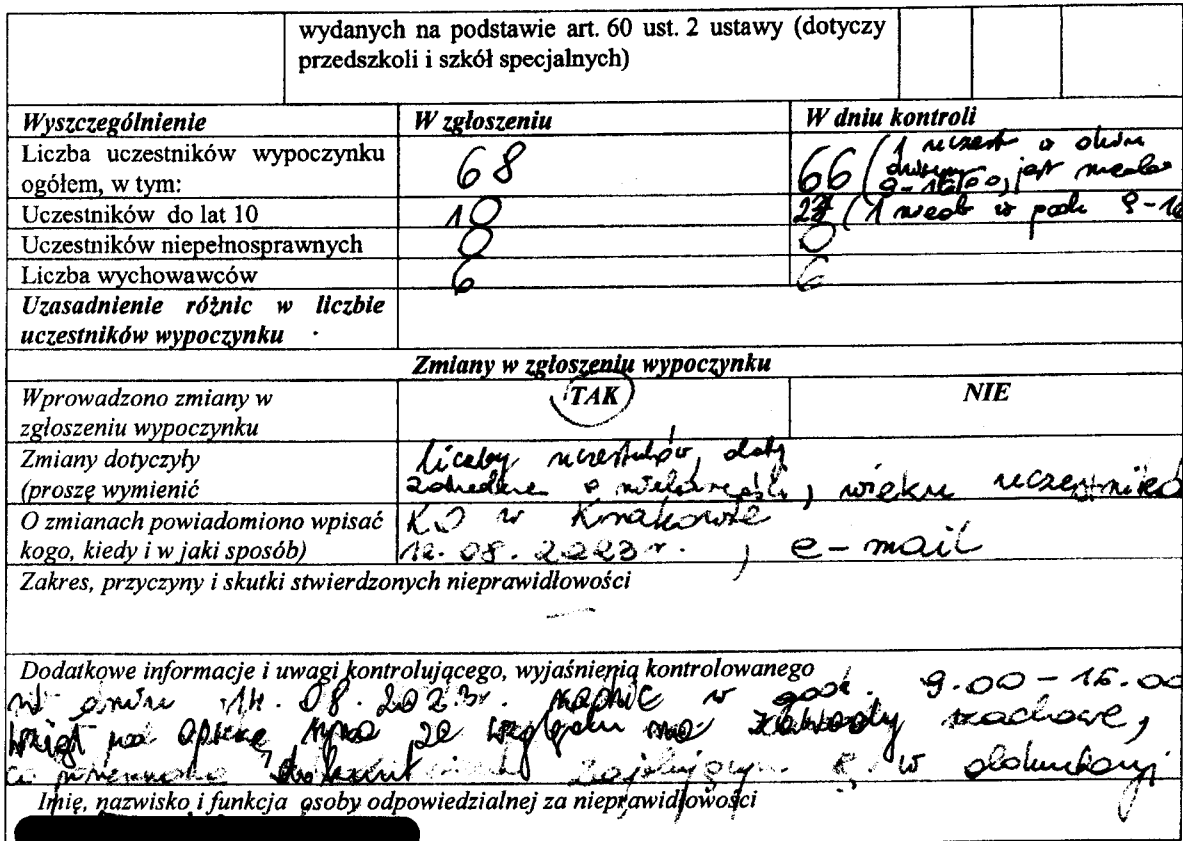 wydanych na podstawie art. 60 ust. 2 ustawy (dotyczy
przedszkoli i szkół specjalnych)
Wyszczególnienie W zgłoszeniu W dniu kontroli
Liczba uczestników wypoczynku
ogółem, w tym: 68 66 (1 uczest w dniu
9-16.00, jest
Uczestników do lat 10 10 (1 nieob w 9-16
Uczestników niepełnosprawnych 0 0
Liczba wychowawców 6 6
Uzasadnienie różnic w liczbie
uczestników wypoczynku
Zmiany w zgłoszeniu wypoczynku
Wprowadzono zmiany w
zgłoszeniu wypoczynku TAK NIE
Zmiany dotyczyły
(proszę wymienić
liczby uczestników, daty
wieku uczestników
O zmianach powiadomiono wpisać
kogo, kiedy i w jaki sposób)
KO w Krakowie
08.2023r., e-mail
Zakres, przyczyny i skutki stwierdzonych nieprawidłowości
Dodatkowe informacje i uwagi kontrolującego, wyjaśnienia kontrolowanego
w dniu 14.08.2023r. rodzic w godz. 9.00-16.00
wziął pod opiekę syna ze względu na zawody szachowe,
w dokumentacji
Imię, nazwisko i funkcja osoby odpowiedzialnej za nieprawidłowości